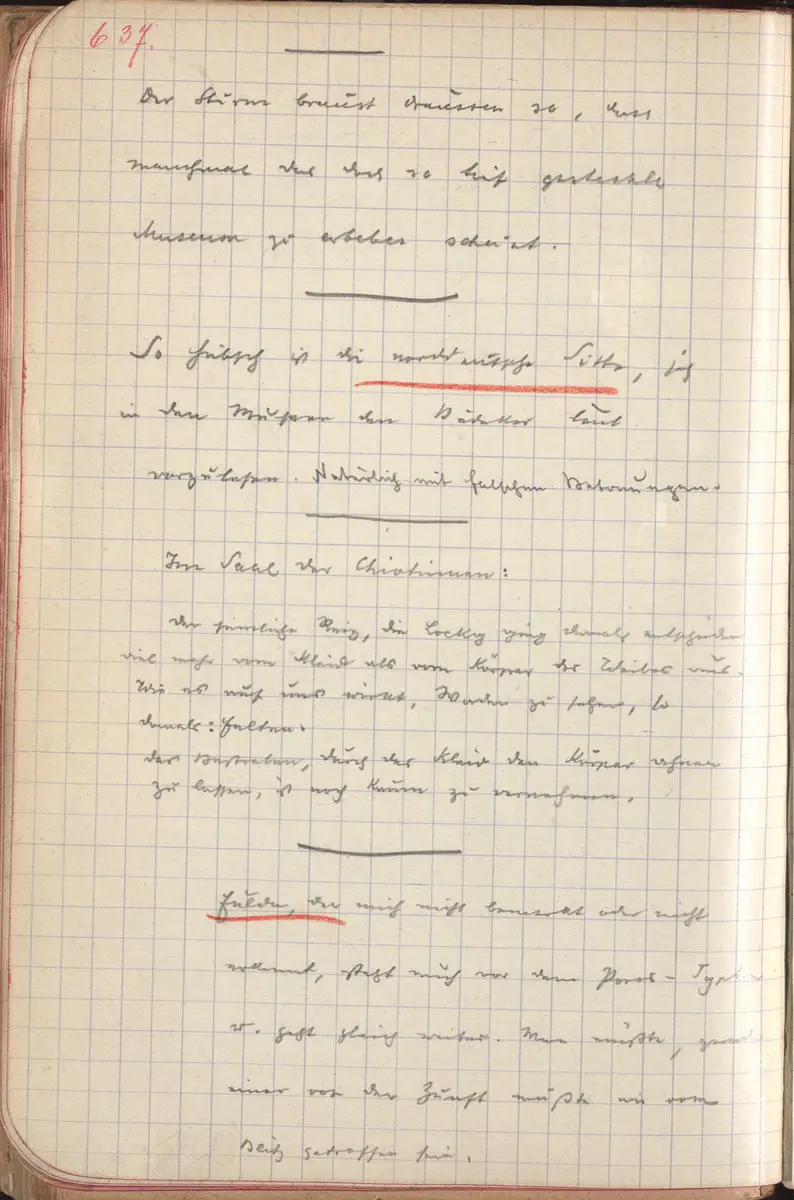 637.
Der Sturm braust draussen so, dass
manchmal das doch so tief gesteckte
Museum zu erbeben scheint.
So hübsch ist die norddeutsche Sitte, sich
in den Museen den Bädeker laut
vorzulesen. Natürlich mit falschen Betonungen.
Im Saal der Chiotinnen:
Der sinnliche Reiz, die Lockg ging damals entschieden
viel mehr vom Kleid als vom Körper des Weibes aus.
Wie es auf uns wirkt, Waden zu sehen, so
damals: Falten.
Das Bestreben, durch das Kleid den Körper ahnen
zu lassen, ist noch kaum zu vernehmen.
Fulda, der mich nicht bemerkt oder nicht
erkennt, steht auch vor dem Poros-
u. geht gleich weiter. Man müßte, gerade
einer von der Zunft müßte wie vom
Blitz getroffen sein.